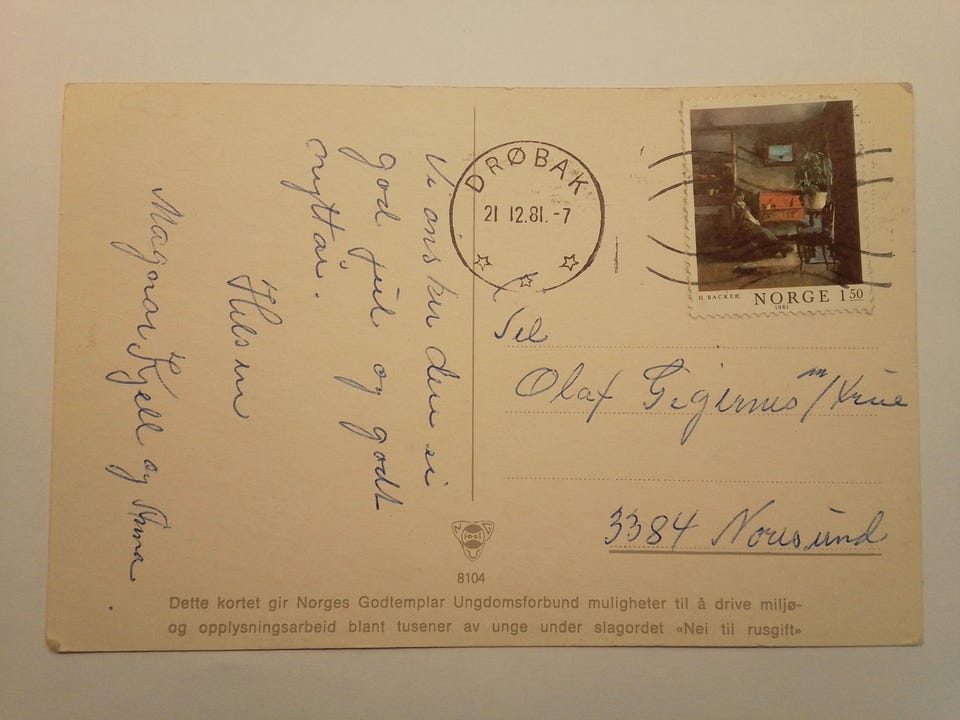 Vi ønsker den ei
god jul og godt
nyttår.
Hilsen
Magnar Kjell og Anna
DRØBAK
21 12.81.-7
H. BACKER NORGE 1 50
1981
Til
Olaf m/
3384 Noresund
8104
Dette kortet gir Norges Godtemplar Ungdomsforbund muligheter til å drive miljø-
og opplysningsarbeid blant tusener av unge under slagordet «Nei til rusgift»